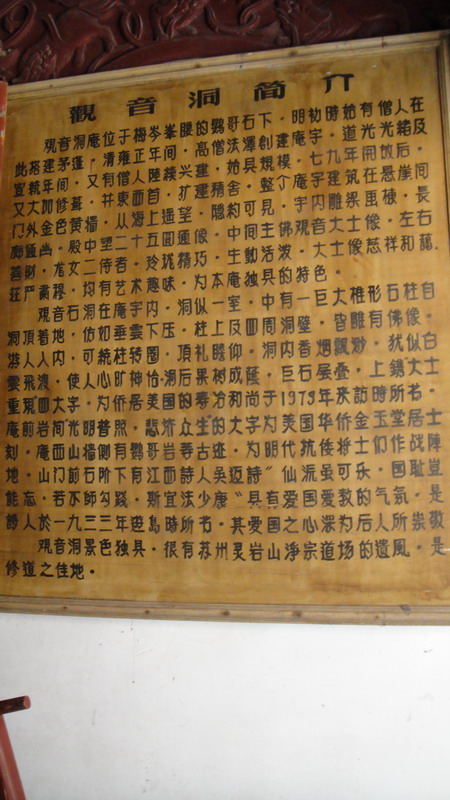 觀音洞简介
觀音洞庵位于梅岑峯腰的鸚哥石下。明初時始有僧人在
此搭建茅蓬，清雍正年间，高僧法澤創建庵宇，道光光緒及
宣統年间，又有僧人陸續兴建，始具規模。七九年開放后，
又大加修葺，并東西首，扩建精舍，整个庵宇建筑在悬崖间
门外金色黄墙，从海上遥望，隐約可見。宇内雕梁画棟，長
廊 幽，殿中塑二十五圆通像，中间主佛观音大士像，左右
善财，龙女二侍者，玲珑精巧，生動活泼，大士像慈祥和藹，
莊严肅穆，均有艺术趣味，为本庵独具的特色。
观音石洞在庵宇内，洞似一室，中有一巨大椎形石柱自
洞頂着地，仿如垂雲下压，柱上及四周洞壁，皆雕有佛像。
游人入内，可繞柱转圈，頂礼瞻仰。洞内香烟飘渺，犹似白
雲飛渡，使人心旷神怡。洞后果树成蔭，巨石层叠，上鐫大士
重現四大字，为侨居美国的寿冶和尚于1979年来訪時所书。
庵前岩间光明普照，悲济众生的大字为美国华侨金玉堂居士
刻，庵西山墙侧有鸚哥岩等古迹，为明代抗倭將士们作战陣
地。山门前石阶下有江西詩人吴迈詩“仙 虽可乐，国耻豈
能忘，若不師勾踐，斯宜法少康”具有爱国爱教的气氛，是
詩人於一九三三年遊島時所书，其爱国之心深为后人所崇敬
观音洞景色独具，很有苏州灵岩山淨宗道场的遺風，是
修道之佳地。